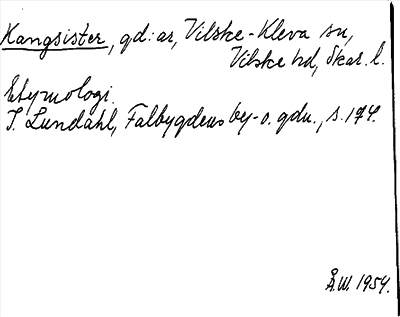 Kangsister, gd:ar, Vilske-Kleva sn,
Vilske hd, Skar. l.
Etymologi.
I. Lundahl, Falbygdens by-o. gdn., s. 174.
Å.W. 1954.